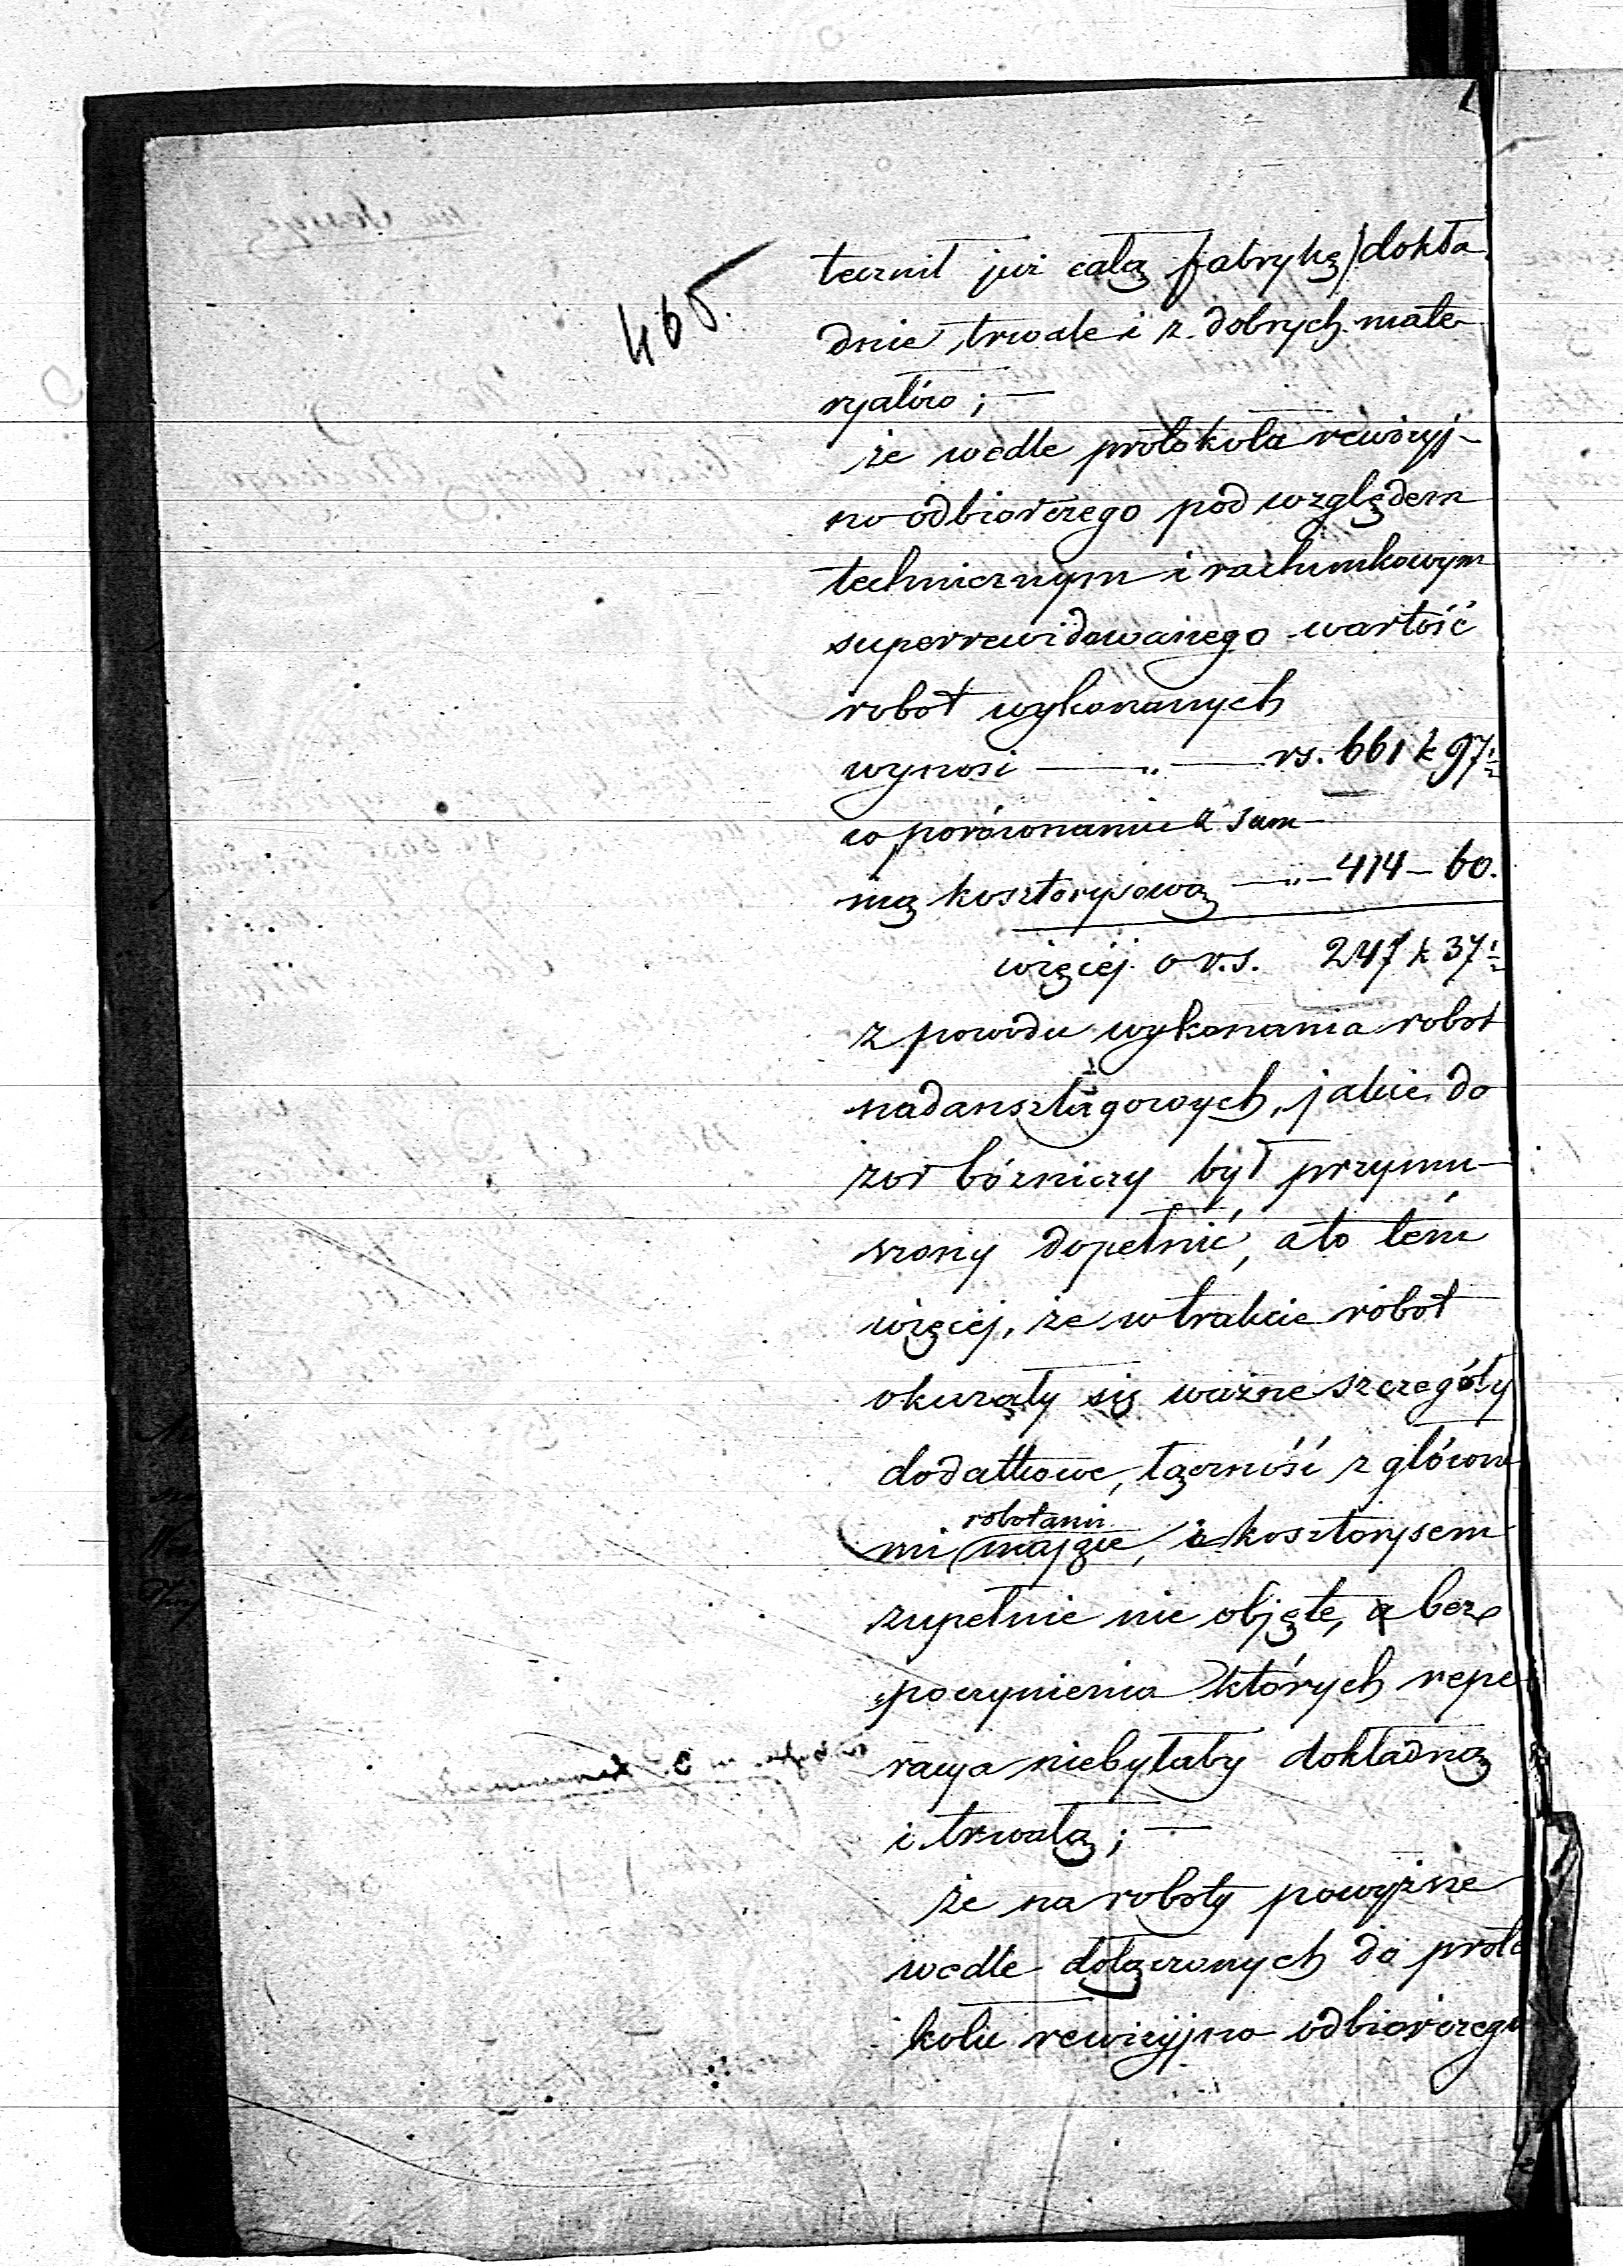 465.
tecznił już całą fabrykę dokła
dnie, trwale i z dobrych mate
ryałów; —
że wedle protokołu rewizyj-
no odbiorczego pod względem
technicznym i rachunkowym
superrewidowanego wartość
robot wykonanych
wynosi — „ — rs. 661 k 97 1/2
w porównaniu z sum
mą kosztorysową — „ — 414 — 60.
więcej o r.s. 247 k 37 1/2
z powodu wykonania robot
nadanszlagowych, jakie do
zór bóżniczy był przymu-
szony dopełnić, a to tém
więcej, że w trakcie robot
okazały się ważne szczegóły
dodatkowe, łączność z główne
robotami
mi mające, a kosztorysem
zupełnie nie objęte, a bez
poczynienia których repe
racya niebyłaby dokładną
i trwałą; —
że na roboty powyższe
wedle dołączonych do proto
kołu rewizyjno odbiorczego